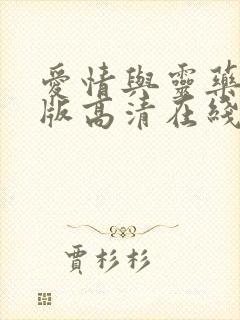 愛情與靈藥
版高清在綫
賈杉杉